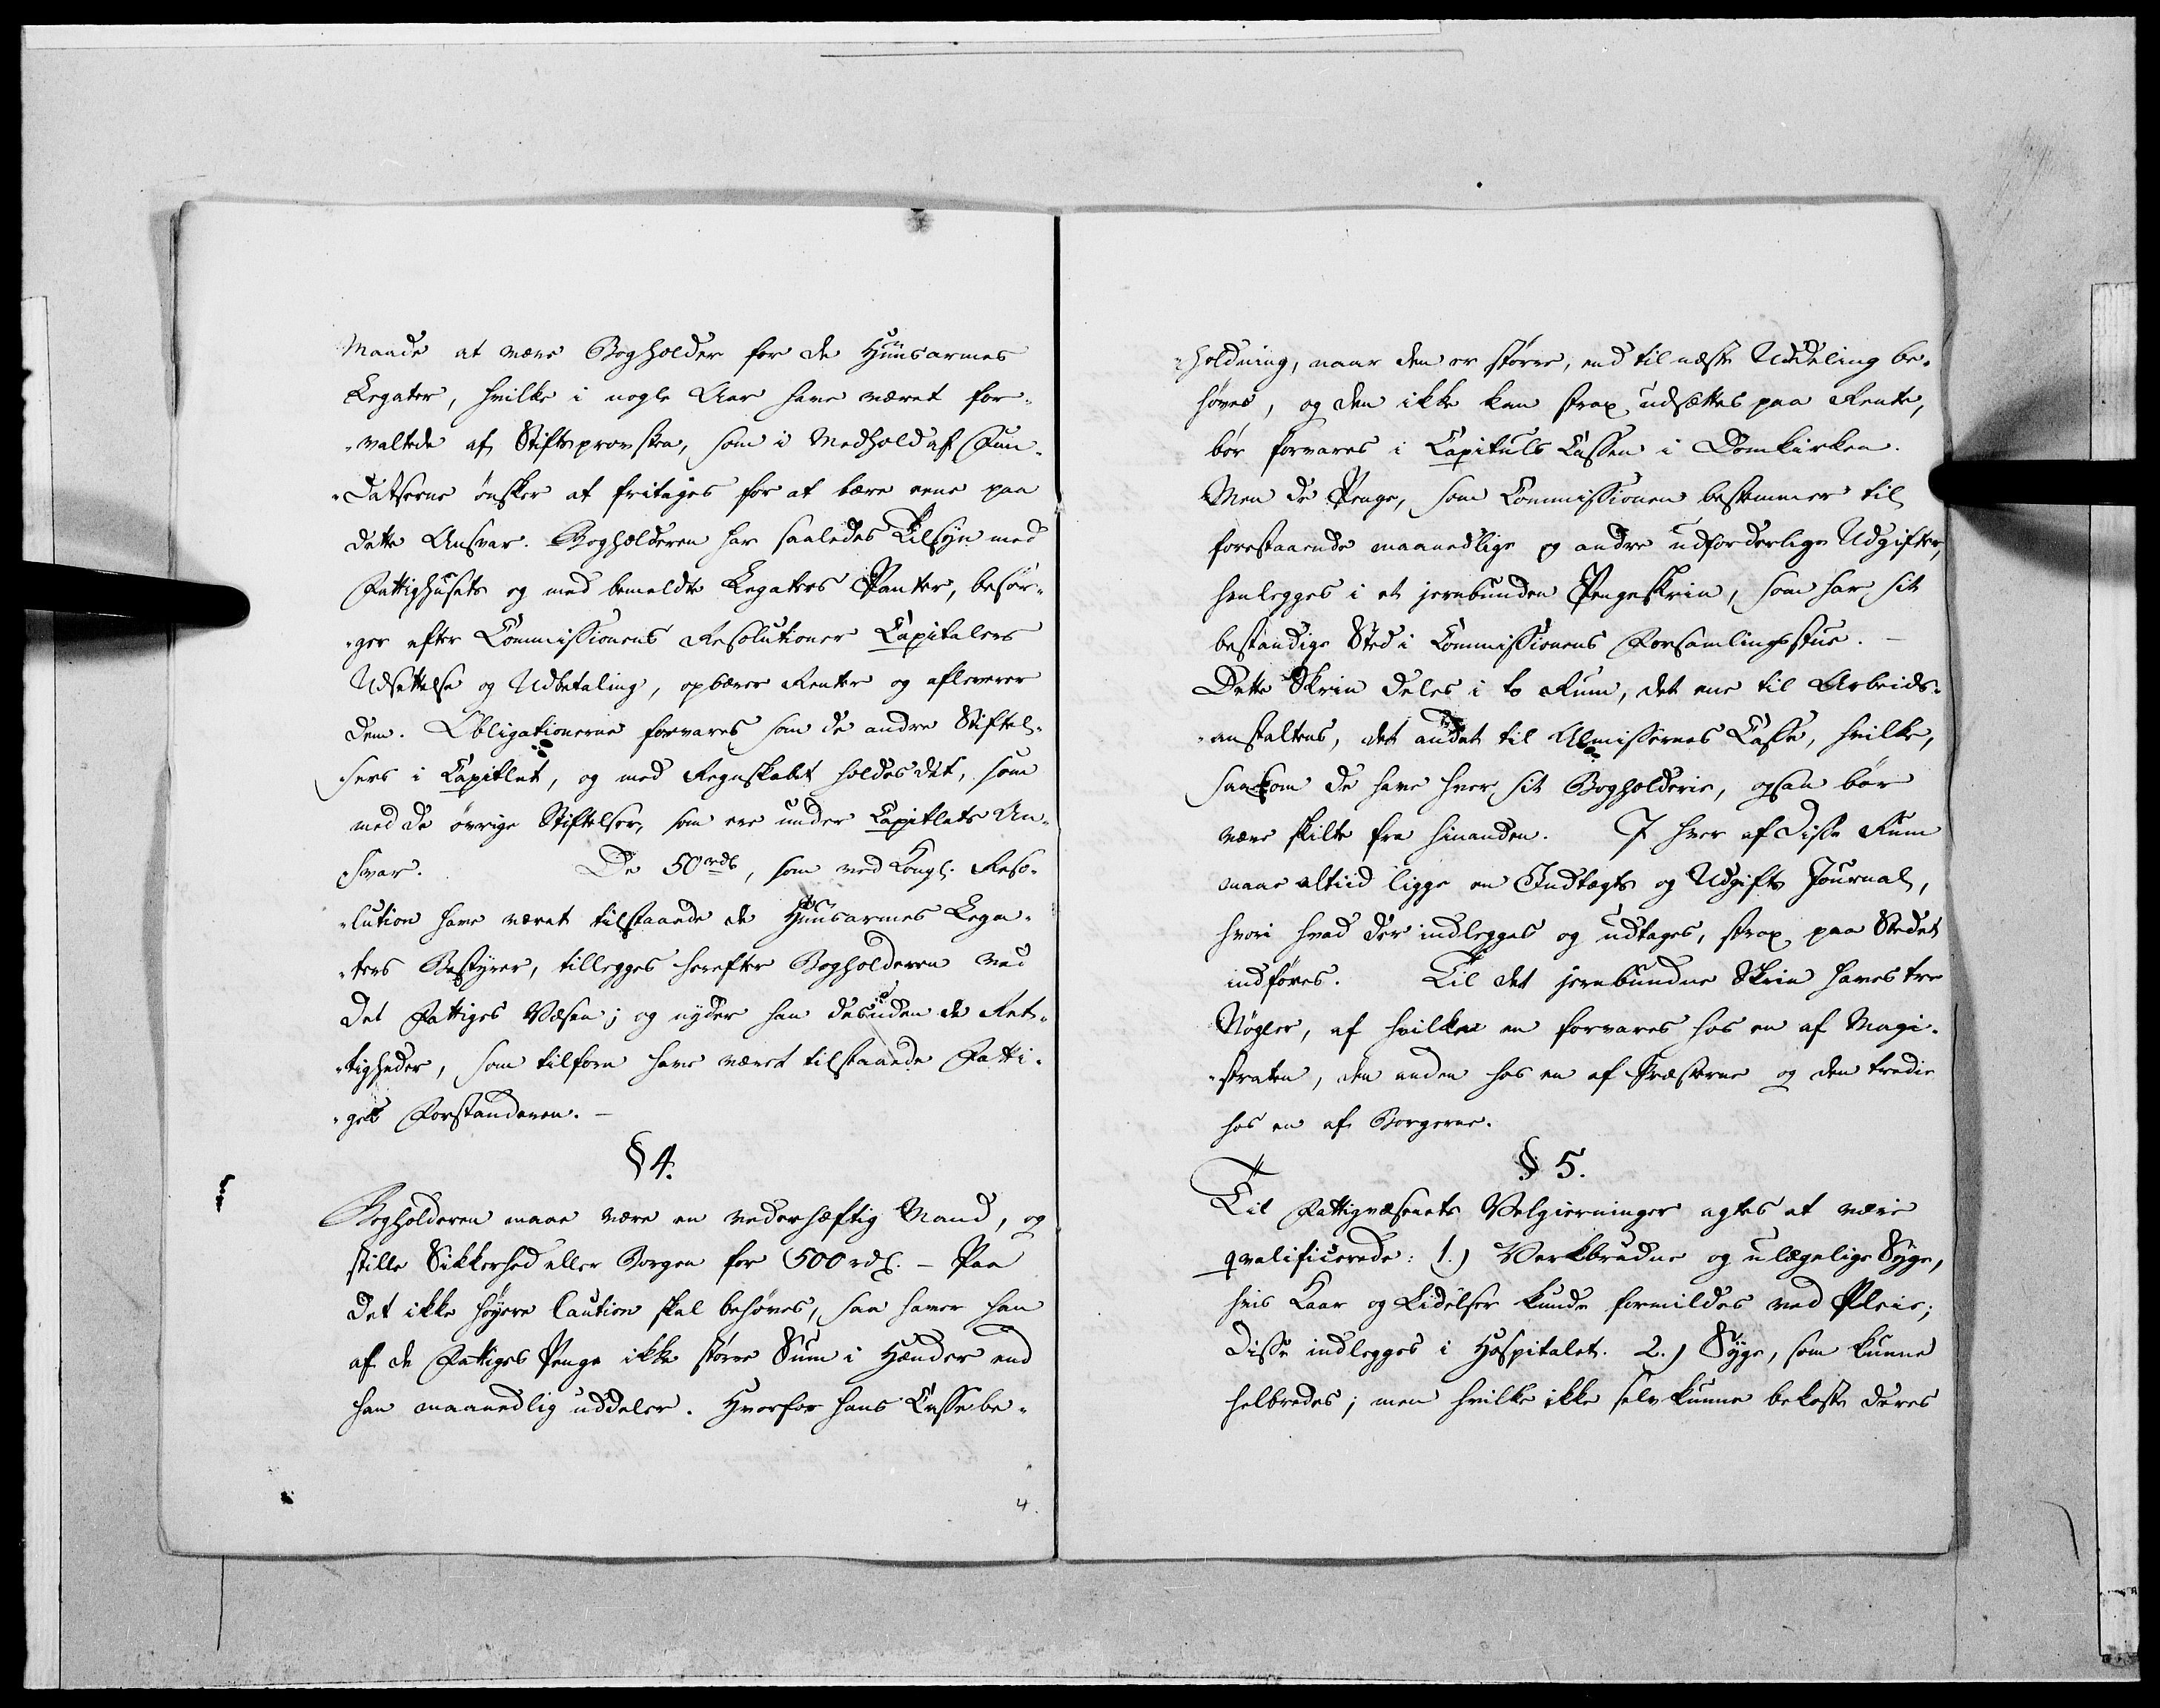 Maade at være Bogholder for de Huusarmes
Legater, hvilke i nogle Aar have været for-
-valtede af Stiftsprovsten, som i Medhold af Fun-
-datserne ønsker at fritages for at bære ene paa
dette Ansvar. Bogholderen har saaledes Tilsyn med
Fattighusets og med bemeldte Legaters Panter, besør-
-ger efter Commissionens Resolutioner Capitalers
Udsættelse og Udbetaling, opbærer Renter og afleverer
dem. Obligationerne forvares som de andre Stiftel-
sers i Capitlet, og med Regnskabet holdes det, som
med de øvrige Stiftelser, som ere under Capitlets An-
svar. De 50 rdl, som ved Kongl. Reso-
-lution have været tilstaaede de Huusarmes Lega-
-ters Bestyrer, tillegges herefter Bogholderen ved
det Fattiges Væsen; og nyder han desuden de Ret-
-tigheder, som tilforn have været tilstaaede Fatti-
-ges Forstanderen. -
§ 4.
Bogholderen maae være en vederhæftig Mand, og
stille Sikkerhed eller Borgen for 500 rdl. - Paa
det ikke høyere Caution skal behøves, saa haver han
af de Fattiges Penge ikke større Sum i Hænder end
han maanedlig uddeler. Hvorfor hans Cassebe-
4.
-holdning, naar den er større, end til næste Uddeling be-
høves, og den ikke kan strax udsættes paa Rente,
bør forvares i Capituls Cassen i Domkirken.
Men de Penge, som Commissionen bestemmer til
forestaaende maanedlige og andre udforderlige Udgifter,
henlegges i et jernbunden Pengeskrin, som har sit
bestandige Sted i Commissionens Forsamlingsstue. -
Dette Skrin deles i to Rum, det ene til Arbeids-
-anstaltens, det andet til Almissernes Casse, hvilke,
saasom de have hver sit Bogholderie, ogsaa bør
være skilte fra hinanden. I hver af disse Rum
maae altiid ligge en Indtægts og Udgifts Journal,
hvori hvad der indlegges og udtages, strax paa Stedet
indføres. Til det jernbundne Skrin haves tre
Nøgler, af hvilke en forvares hos en af Magi-
-straten, den anden hos en af Præsterne og den tredie
hos en af Borgerne.
§ 5.
Til Fattigvæsenets Velgierninger agtes at være
qvalificerede: 1.) Værkbrudne og ulægelige Syge,
hvis Kaar og Lidelser kunde formildes ved Pleie;
disse indlegges i Hospitalet. 2.) Syge, som kunne
helbredes; men hvilke ikke selv kunne bekoste deres